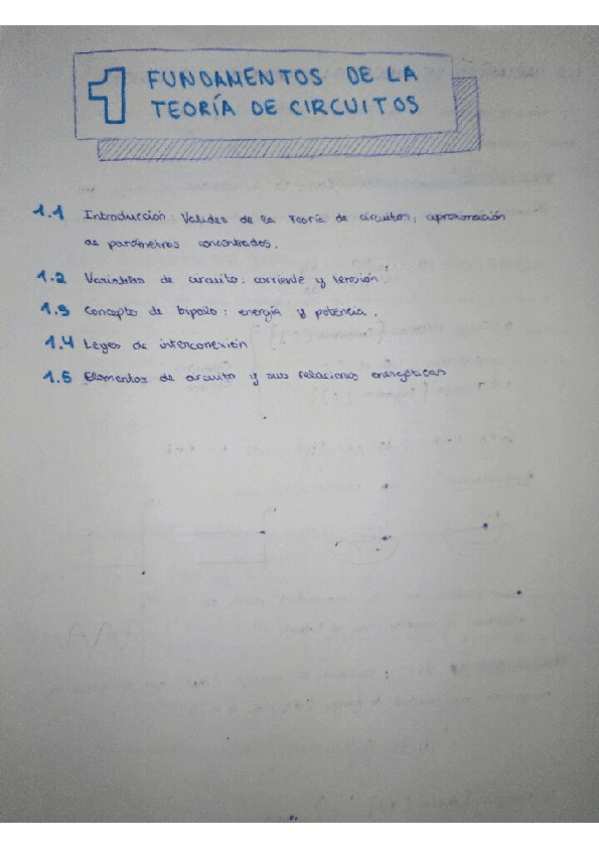 1 FUNDAMENTOS DE LA
TEORÍA DE CIRCUITOS
1.1 Introducción: Validez de la teoría de circuitos, aproximación
de parámetros concentrados.
1.2 Variables de circuito: corriente y tensión
1.3 Concepto de bipolo: energía y potencia.
1.4 Leyes de interconexión
1.5 Elementos de circuito y sus relaciones energéticas